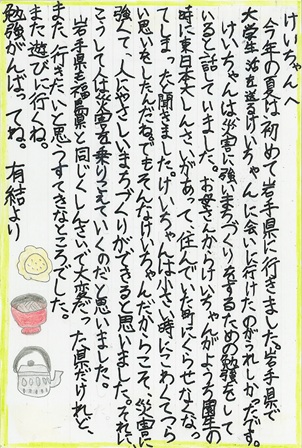 けいちゃんへ
今年の夏は初めて岩手県に行きました。岩手県で
大学生活を送るけいちゃんに会いに行けたのがうれしかったです。
けいちゃんは災害に強いまちづくりをするための勉強をして
いると話していました。お母さんからけいちゃんがよう園生の
時に東日本大しんさいがあって、住んでいた町にくらせなくな
てしまった聞きました。けいちゃんは小さい時にこわくてつら
い思いをしたんだね。でもそんなけいちゃんだからこそ、災害に
強くて人にやさしいまちづくりができると思いました。それに、
こうして人は災害を乗りこえていくのだと思いました。
岩手県も福島県と同じくしんさいで大変だった県だけれど、
また、行きたいと思うすてきなところでした。
また遊びに行くね。
勉強がんばってね。 有結より